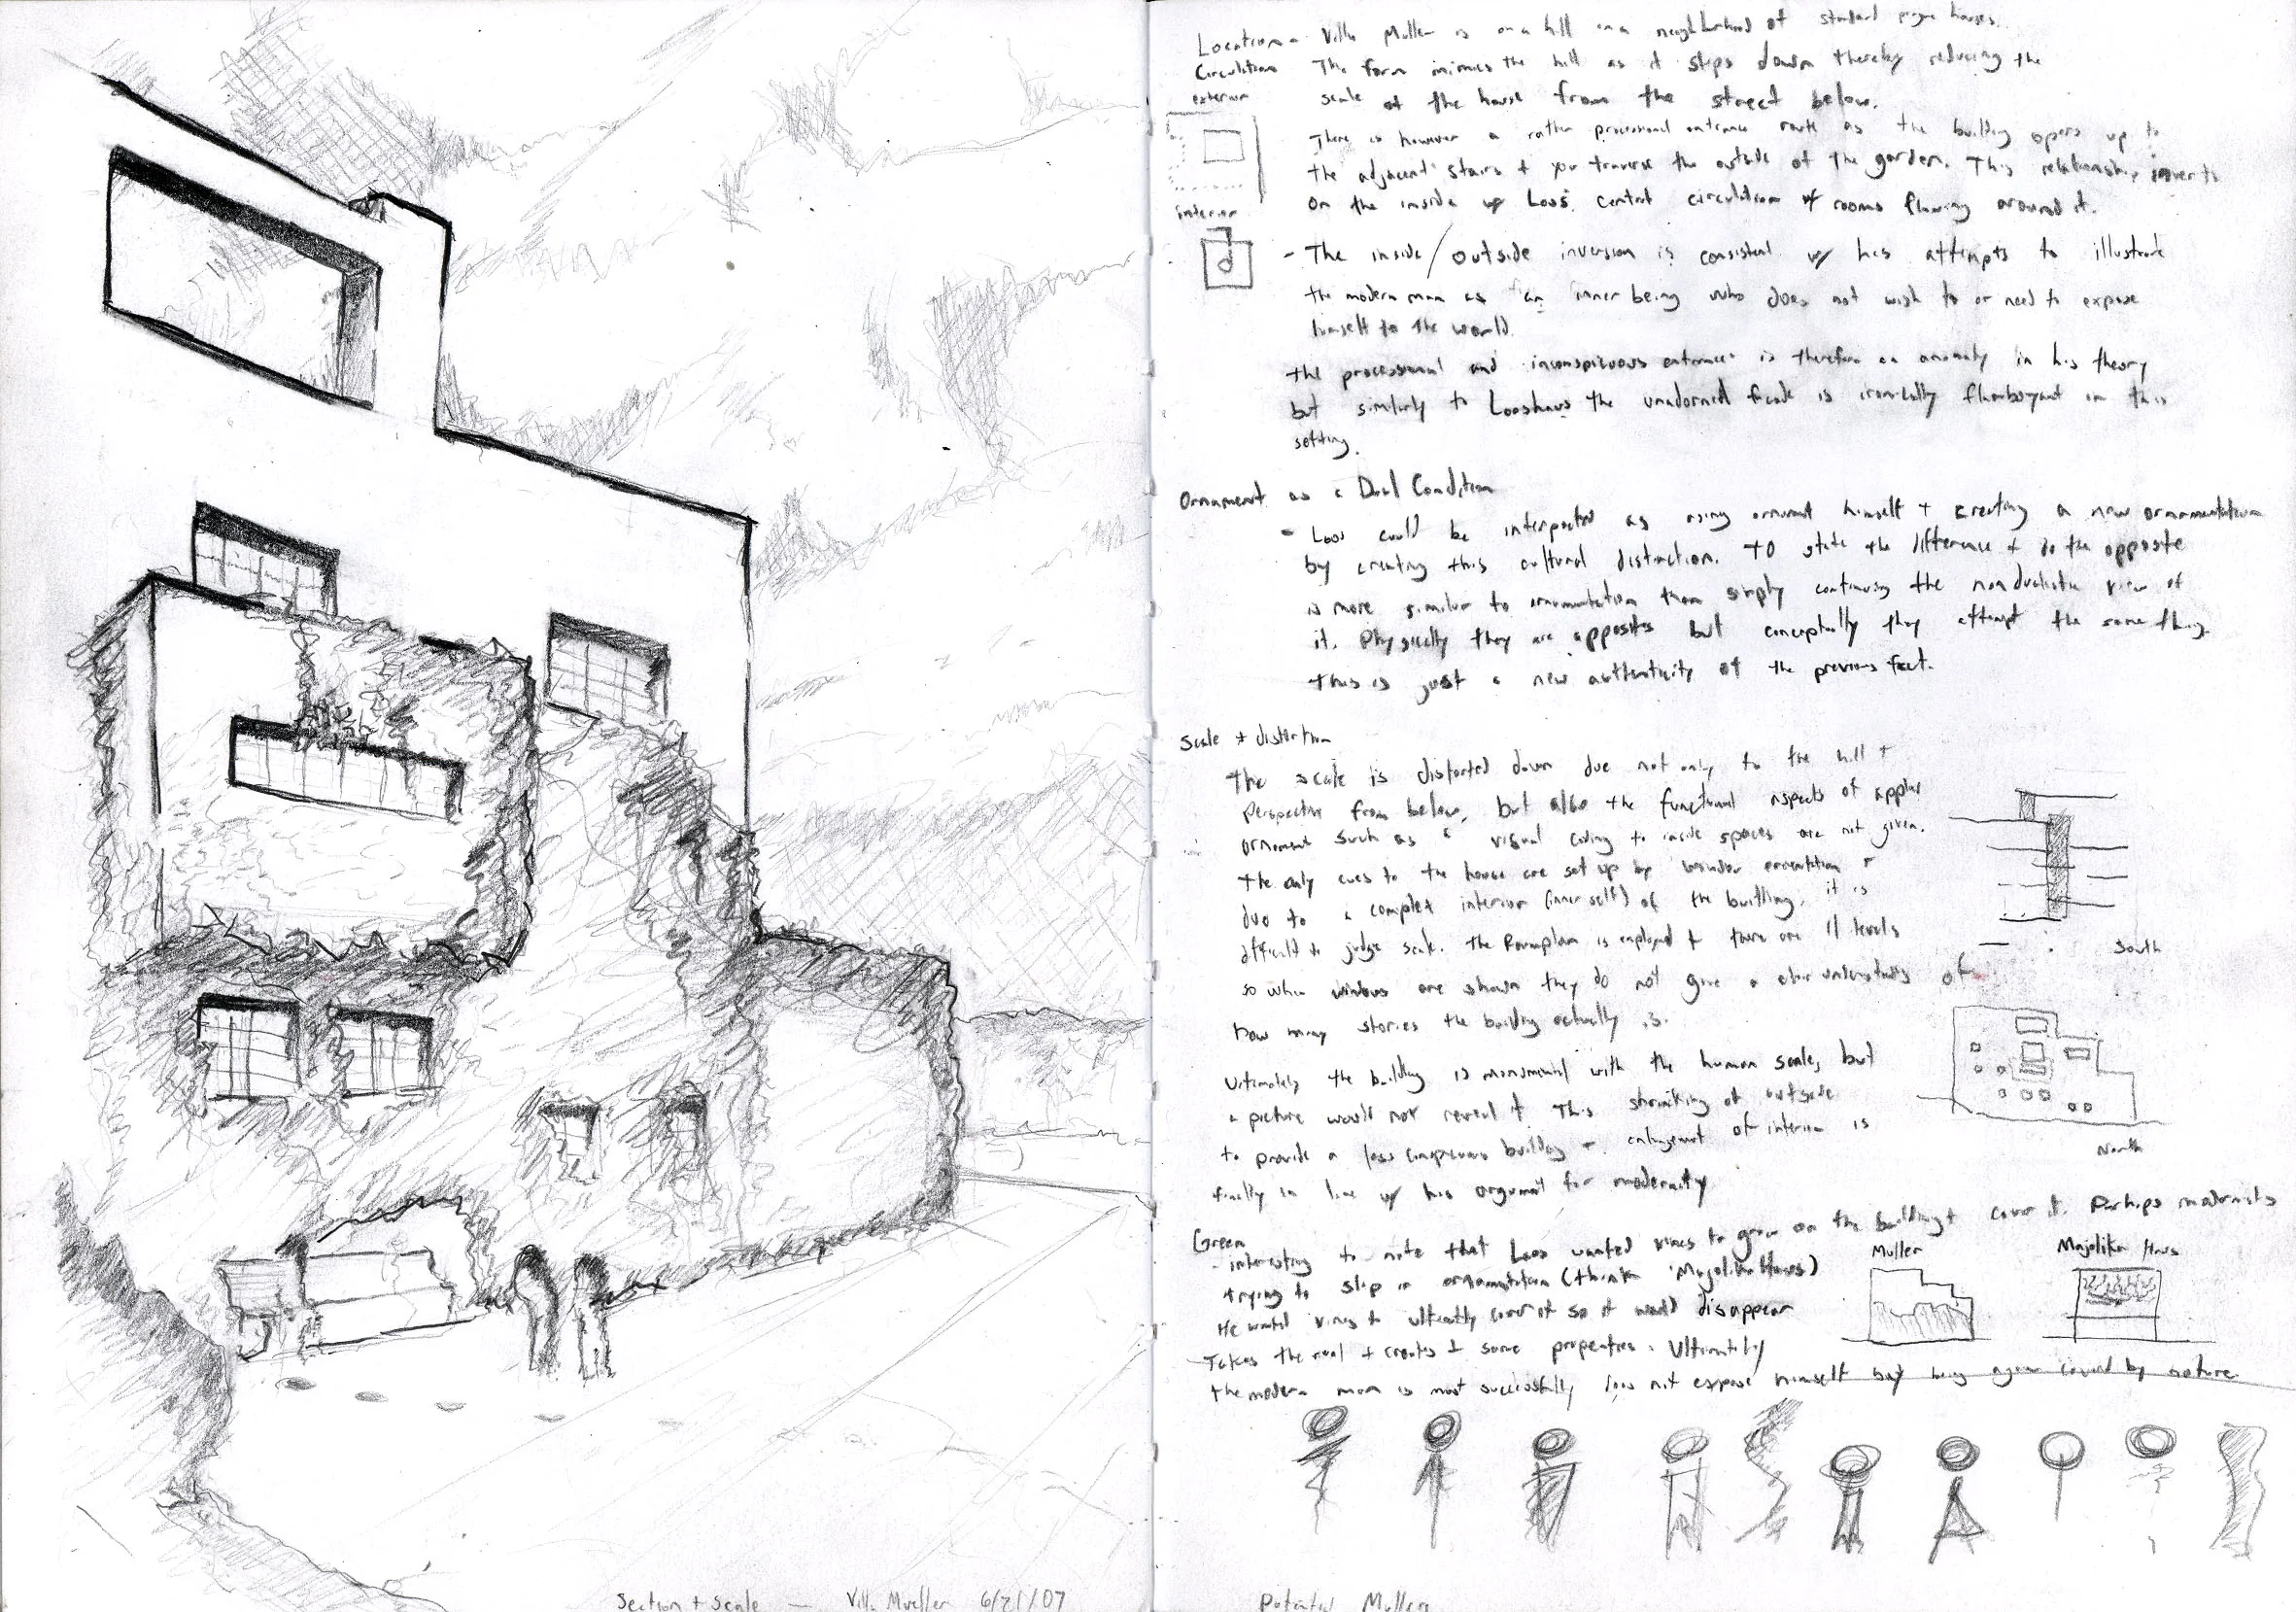 Section + Scale — Villa Mueller 6/21/07
Location - Villa Muller is on a hill in a neighborhood of standard prague houses.
Circulation The form mimics the hill as it steps down thereby reducing the
scale of the house from the street below.
exterior
There is however a rather processional entrance route as the building opens up to
the adjacent stairs + you traverse the outside of the garden. This relationship inverts
on the inside w/ Loos' central circulation w/ rooms flowing around it.
interior
- The inside/outside inversion is consistent w/ his attempts to illustrate
the modern man as an inner being who does not wish to or need to expose
himself to the world.
the processional and inconspicuous entrance is therefore an anomaly in his theory
but similarly to Looshaus the unadorned facade is ironically flamboyant in this
setting.
Ornament as a Dual Condition
- Loos could be interpreted as using ornament himself + creating a new ornamentation
by creating this cultural distinction. To state the difference + do the opposite
is more similar to ornamentation than simply continuing the nondualistic view of
it. Physically they are opposites but conceptually they attempt the same thing.
this is just a new authenticity of the previous fact.
Scale + distortion
The scale is distorted down due not only to the hill +
perspective from below, but also the functional aspects of
ornament such as a visual coding to inside spaces are not given.
the only cues to the house are set up by window orientation +
due to a complex interior (inner self) of the building, it is
difficult to judge scale. The Raumplan is employed + there are 11 levels
so when windows are shown they do not give a clear understanding of
how many stories the building actually is.
South
Ultimately the building is monumental with the human scale, but
a picture would not reveal it. This shrinking of outside
to provide a less conspicuous building + enlargement of interior is
finally in line w/ his argument for modernity
North
Green
- interesting to note that Loos wanted vines to grow on the building + cover it. Perhaps modernists
trying to slip in ornamentation (think Majolika Haus)
Muller
Majolika Haus
He wanted vines to ultimately cover it so it would disappear
- Takes the real + creates some properties. Ultimately
the modern man is most successfully does not expose himself by being again covered by nature
Muller